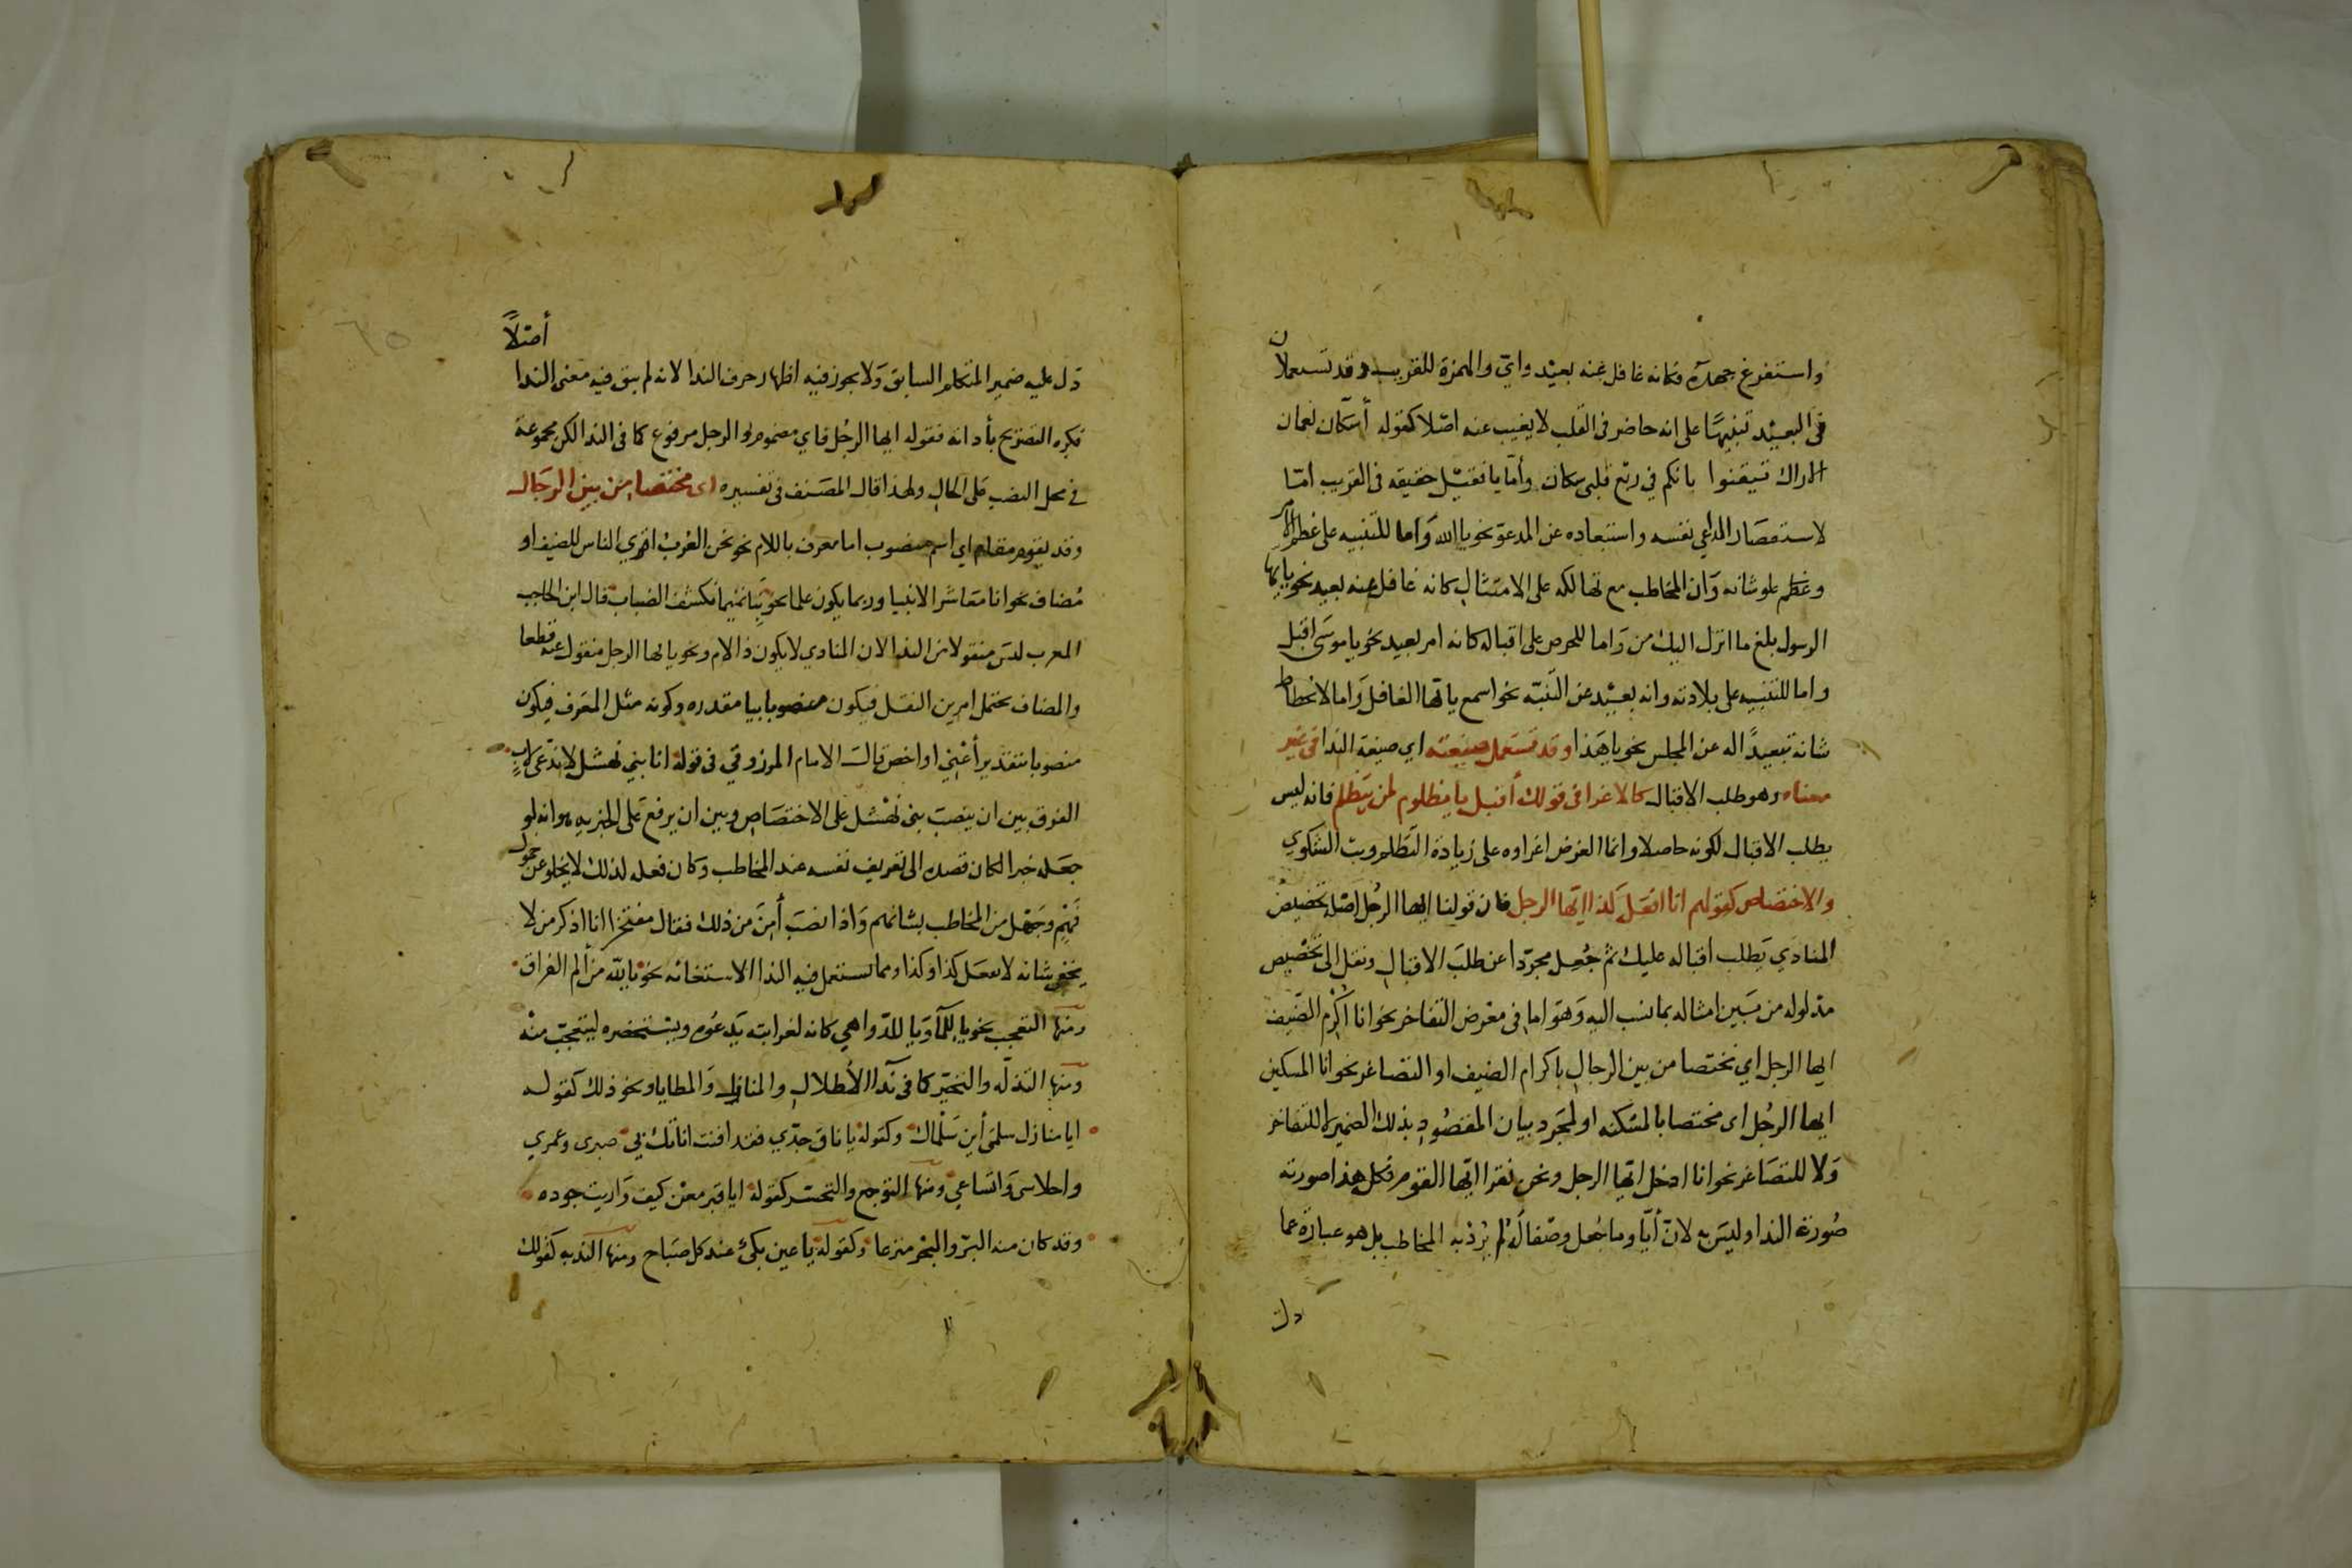 واستفرغ جهده فكانه غافل عنه بعيد واي والهمزة للقريب وقد تستعملان
فى البعيد تنبيهًا على انه حاضر فى القلب لا يغيب عنه اصلا كقوله أسكان نعمان
الاراك تيقنوا بانكم في ربع قلبى سكان وأما يا فقيل حقيقه فى القريب امّا
لاستقصار الداعي نفسه واستبعاده عن المدعو نحو يا الله وَاما للتنبيه على عظم الامر
وعظم علو شانه وَان المخاطب مع تهالكه على الامتثال كانه غافل عنه بعيد نحو يا ايها
الرسول بلغ ما انزل اليك من وَاما للحرص على اقباله كانه امر بعيد نحو يا موسَى اقبل
واما للتنبيه على بلادته وانه بعيد عن التنبّه نحو اسمع ياتها الغافل وَاما لانحطاط
شانه تبعيدًا له عن المجلس نحو يا هَذا وقد تستعمل صيغته اي صيغة الندا فى غير
معناه وهو طلب الاقبال كالاغرا فى قولك أقبل يا مظلوم لمن يتظلم فانه ليس
يطلب الاقبال لكونه حاصلا وانما الغرض اغراوه على زيادة التظلم وبث الشكوي
والاختصاص كقولهم انا افعل كذا ايّها الرجل فان قولنا ايها الرجُل اصله تخصيصْ
المنادَي يَطلب اقباله عليك ثم جُعِل مجرّدا عن طلبَ الاقبالِ ونقل الى تَخْصيص
مدلوله من بَين امثاله بما نسب اليه وَهوَ اما فى معْرض التفاخر نحو انا اكْرم الضّيف
ايها الرجل اي مختصا من بين الرجالِ باكرام الضيف او التصاغر نحو انا المسكين
ايها الرجُل اى مختصا بالمسْكنه او لمجَرد بيان المقصُودِ بذلك الضمير لا للتفاخر
وَلا للتصَاغر نحو انا ادخل ايّها الرجل ونحن نقرا ايّها القوم فكل هذا صورته
صُورَة الندا وليسَ به لانّ أيّا وما جُعل وصفا لهُ لم يرُدْ به المخاطب بل هو عبارة عما
دل
دَل عليه ضمير المتكلم السابق وَلا يجوز فيه اظهار حرف الندا لانه لم يبق فيه معنى الندا أصْلاً
فكره التصريح بأداته فقوله ايها الرجُل فاي مضموم والرجل مرفوع كما فى الندا لكن مجموعة
في محل النصب عَلى الحال ولهذا قال المصَنف فى تفسيره اى مختصا من بين الرجَال
وقد يقوم مقام اي اسم منصوب اما معرف باللام نحو نحن العُربْ اقري الناس للضيف او
مُضاف نحو انا معَاشَر الانبيا وربما يكون علما نحو بنا تميما نكشف الضباب قال ابن الحاجب
المعرب ليس منقولا من الندا لان المنادي لا يكون ذا لام ونحو يا ايها الرجل منقول عنه قطعا
والمضاف يحتمل امرين النقل فيكون منصوبا بيا مقدره وكونه مثل المعَرف فيكون
منصوبا بتقدير أعْني او اخص قالَ الامام المرزوقي فى قولهْ انا بني نهشل لا ندّعى لابٍ
الفرق بين ان ينصبَ بنى نهْشل على الاختصَاصِ وبين ان يرفع عَلى الخبريه هو انه لو
جعَله خبرا لكان قصده الى تعريف نفسه عند المخاطب وكان فعله لذلك لا يخلو عن خمول
فيهِمْ وجَهْل من المخاطب بشانهم وَاذا نصبَ أمِنَ من ذلك فقال مفتخرا انا اذكر من لا
يخفى شانه لا يفعل كذا وكذا ومما تستعمل فيه الندا الاستغاثه نحو يا لله من ألم الفراق
ومنها التعجب نحو يا للمآ وَيا للدّواهي كانه لغرابته يَدعُوه ويستحضره ليتعجّب منه
ومنها التذله والتحيّر كما فى نَدا الأطلالِ والمنازل وَالمطايا ونحو ذلك كقوله
ايا منازل سلمَى أين سَلْماك وكقولهْ يا ناق جدّي فقد افنت اناتك بي صبرى وعمري
واحلاسى وَانساعي ومنها التوجع والتحسّر كقولهْ ايا قبر معْن كيف وَاريت جوده
وقد كان منه البرّ والبحْر مترعا وكقولهْ يا عين بكىْ عند كل صَباح ومنها الندبه كقولك